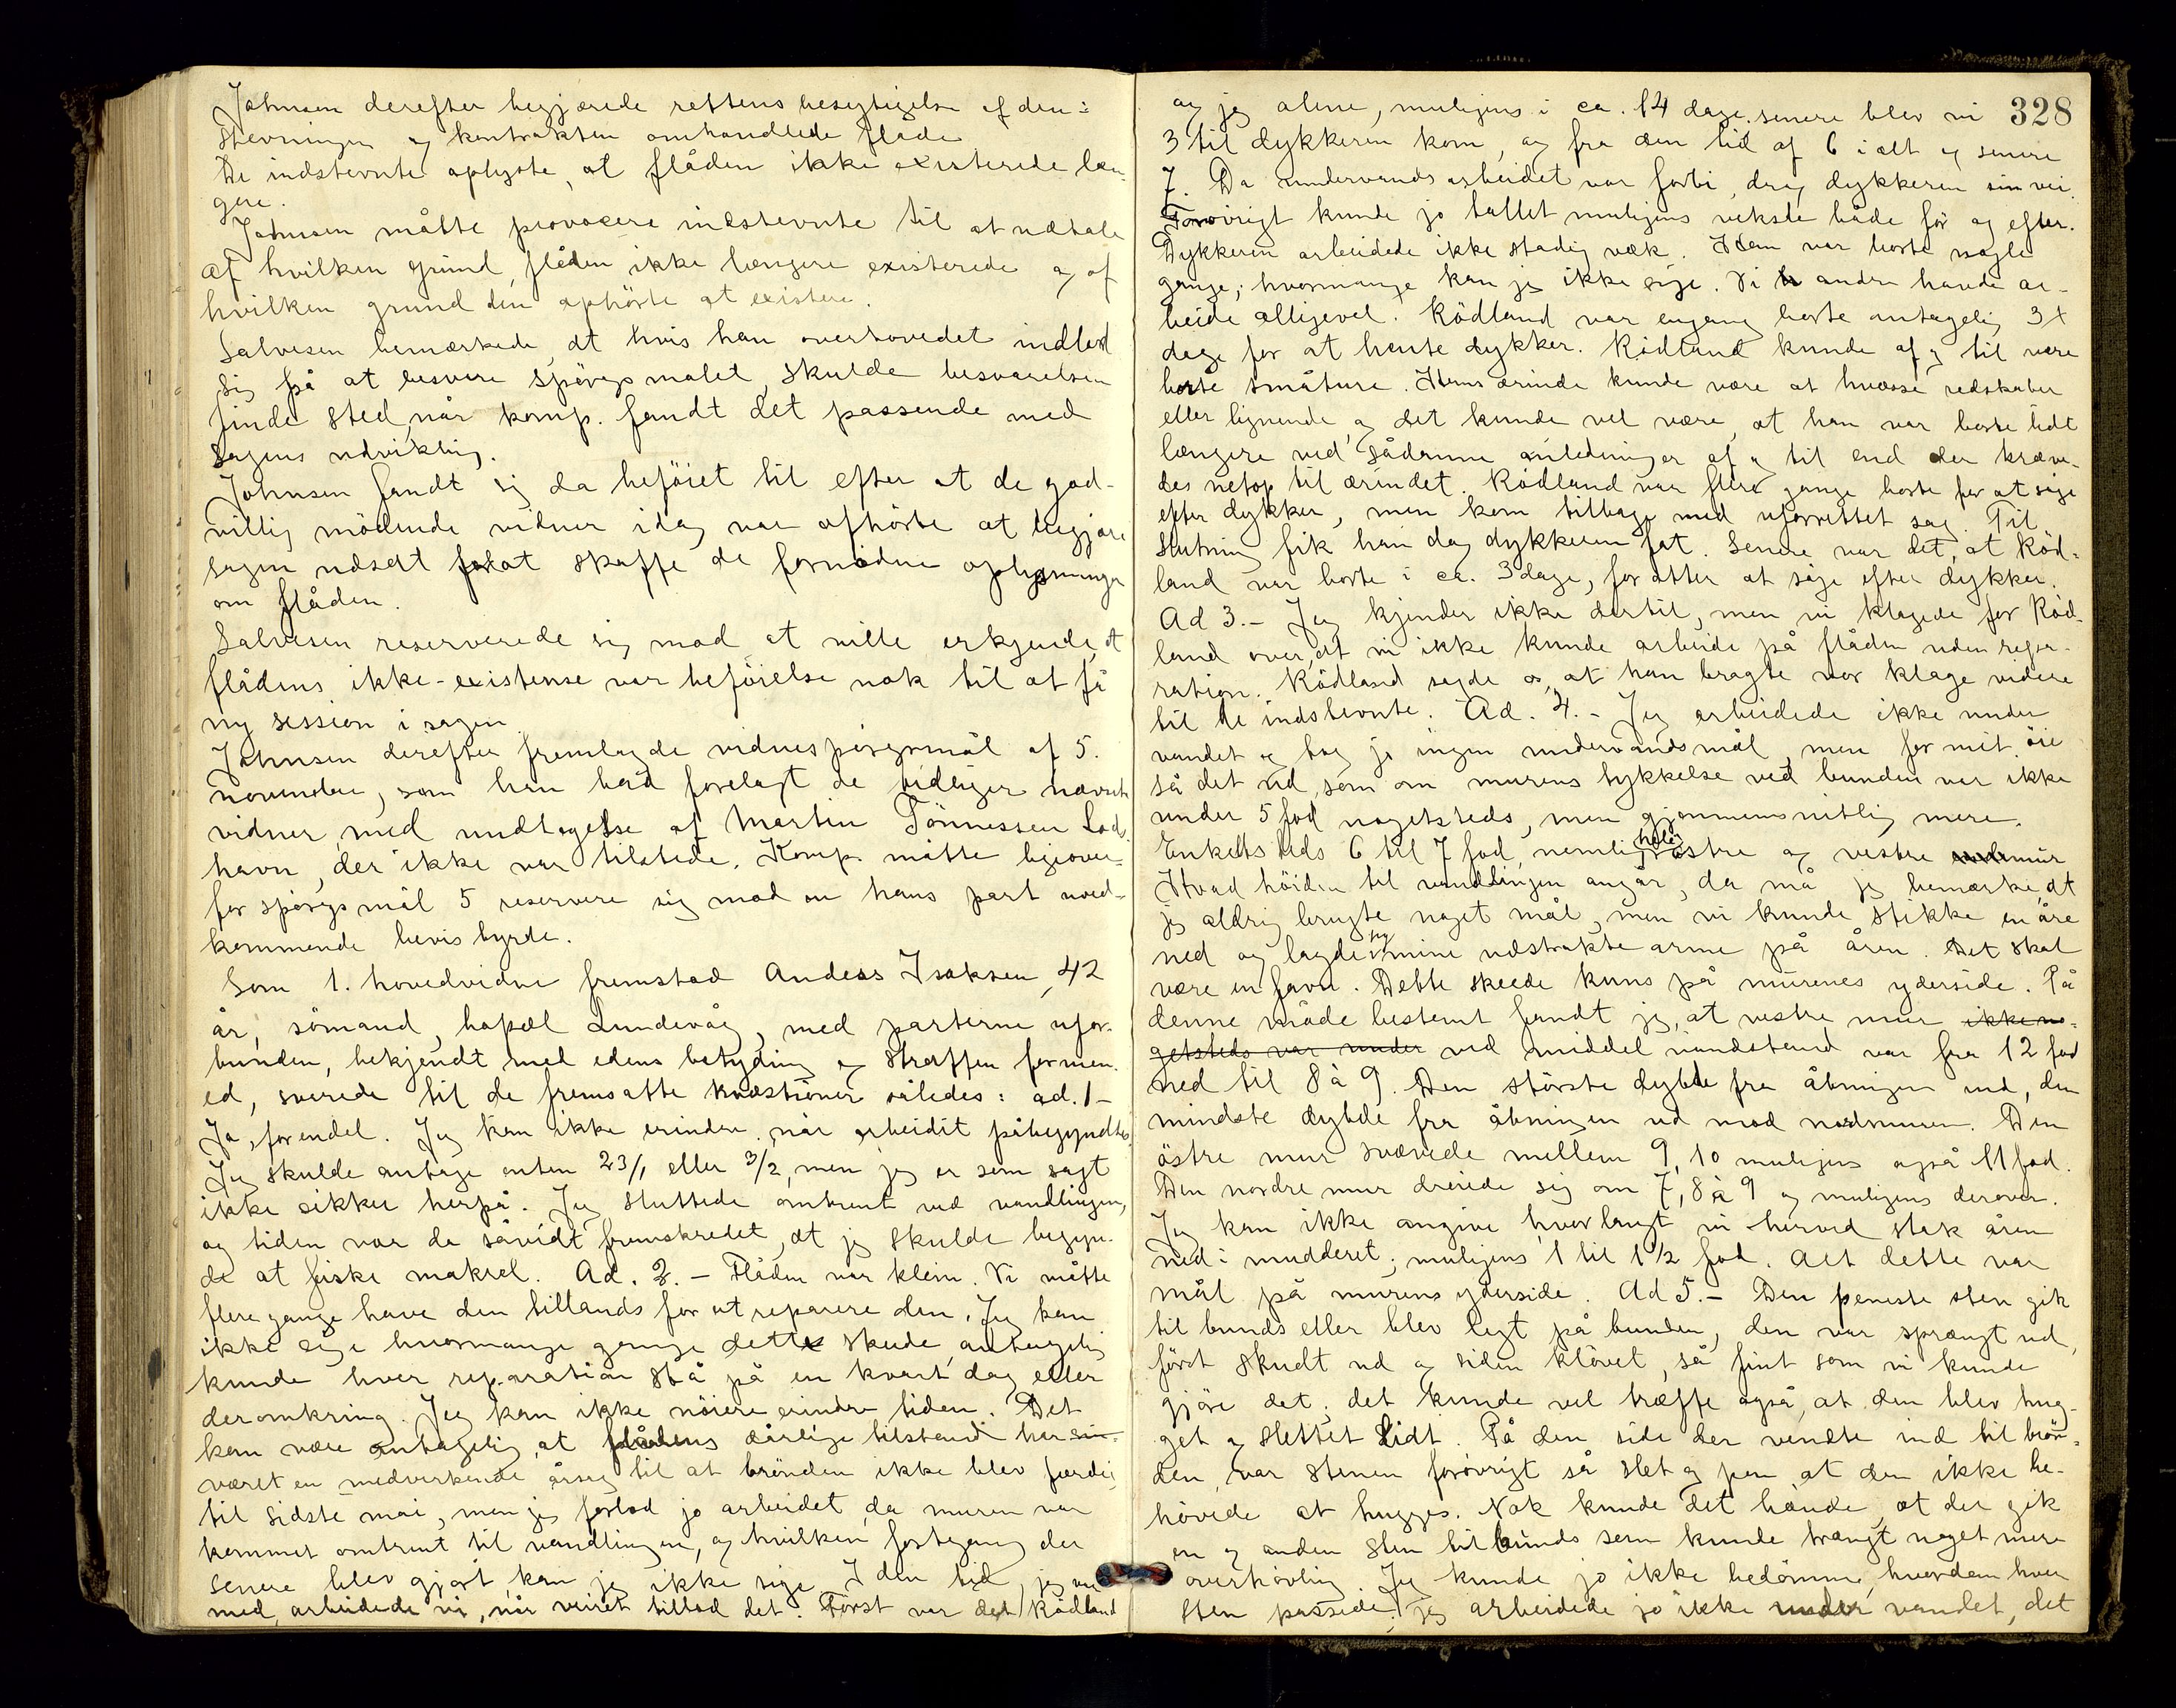 Johnsen derefter begjærede rettens besigtigelse af den i
stevningen og kontrakten omhandlede flåde.
De indstevnte oplyste, at flåden ikke existerede læn-
gere.
Johnsen måtte provocere indstevnte til at udtale
af hvilken grund flåden ikke længere existerede og af
hvilken grund den ophörte at existere.
Salvesen bemærkede, at hvis han overhovedet indlod
sig på at besvare spörgsmålet, skulde besvarelsen
finde sted, når komp. fandt det passende med
sagens udvikling.
Johnsen fandt sig da beföiet til efter at de god-
villig mödende vidner idag var afhörte at begjære
sagen udsat for at skaffe de fornødne oplysninger
om flåden.
Salvesen reserverede sig mod at ville erkjende, at
flådens ikke-existense var beföielse nok til at få
ny session i sagen.
Johnsen derefter fremlagde vidnespörgsmål af 5.
november, som han bad forelagt de tidligere nævnte
vidner med undtagelse af Martin Tönnessen Lods-
havn, der ikke var tilstede. Komp. måtte ligeover-
for spörgsmål 5 reservere sig mod en hans part uved-
kommende bevisbyrde.
Som 1. hovedvidne fremstod Anders Isaksen, 42
år, sömand, bopæl Lundevåg, med parterne ufor-
bunden, bekjendt med edens betydning og straffen for men-
ed, svarede til de fremsatte kvæstioner således: ad. 1 -
Ja, for endel. Jeg kan ikke erindre, når arbeidet påbegyndtes
Jeg skulde antage enten 23/1 eller 3/2, men jeg er som sagt
ikke sikker herpå. Jeg sluttede omtrent ved vandlinjen,
og tiden var da såvidt fremskredet, at jeg skulde begyn-
de at fiske makrel. Ad. 2. - Flåden var klein. Vi måtte
flere gange have den tillands for at reparere den. Jeg kan
ikke sige hvormange gange dette skede, antagelig
kunde hver reparation stå på en kvart dag eller
deromkring. Jeg kan ikke nöiere erindre tiden. Det
kan være antagelig, at flådens dårlige tilstand har
været en medvirkende årsag til at brönden ikke blev færdig
til sidste mai, men jeg forlod jo arbeidet, da muren var
kommet omtrent til vandlinjen, og hvilken fortgang der
senere blev gjort, kan jeg ikke sige. I den tid, jeg var
med, arbeidede vi, når veiret tillod det. Först var det Rödland
328
og jeg alene, muligens i ca. 14 dage. senere blev vi
3 til dykkeren kom, og fra den tid af 6 i alt og senere
7. Da undervandsarbeidet var forbi, drog dykkeren sin vei.
Forövrigt kunde jo tallet muligens veksle både för og efter.
Dykkeren arbeidede ikke stadig væk. Han var borte nogle
gange; hvormange kan jeg ikke sige. Vi andre havde ar-
beide alligevel. Rödland var engang borte antagelig 3
dage for at hente dykker. Rödland kunde af og til være
borte småture. Hans ærinde kunde være at hvæsse redskaber
eller lignende, og det kunde vel være, at han var borte lidt
længere ved sådanne anledninger af og til end der kræve-
des netop til ærindet. Rödland var flere gange borte for at söge
efter dykker, men kom tilbage med uforrettet sag. Til
slutning fik han dog dykkeren fat. Senere var det, at Röd-
land var borte i ca. 3 dage, for atter at söge efter dykker.
Ad 3. - Jeg kjender ikke dertil, men vi klagede for Röd-
land over, at vi ikke kunde arbeide på flåden uden repa-
ration. Rödland sagde os, at han bragte vor klage videre
til de indstevnte. Ad. 4. - Jeg arbeidede ikke under
vandet og tog jo ingen undervandsmål, men for mit öie
så det ud, som om murens tykkelse ved bunden var ikke
under 5 fod nogetsteds, men gjennemsnitlig mere.
Enkeltsteds 6 til 7 fod, nemlig hele östre og vestre mur
Hvad höiden til vandlinjen angår, da må jeg bemærke, at
jeg aldrig brugte noget mål, men vi kunde stikke en åre
ned og lagde jeg mine udstrakte arme på åren. Det skal
være en favn. Dette skeede kuns på murenes yderside. På
denne måde bestemt fandt jeg, at vestre mur ikke no-
getsteds var under ved middel vandstand var fra 12 fod
ned til 8 à 9. Den störste dybde fra åbningen ind, den
mindste dybde fra åbningen ud mod nordmuren. Den
östre mur svævede mellem 9, 10 muligens også 11 fod.
Den nordre mur dreiede sig om 7, 8 à 9 og muligens derover.
Jeg kan ikke angive, hvor langt vi herved stak åren
ned i mudderet; muligens 1 til 1 1/2 fod. Alt dette var
mål på murens yderside. Ad 5. - Den peneste sten gik
til bunds eller blev lagt på bunden, den var sprængt ud,
först skudt ud og siden klövet, så fint som vi kunde
gjöre det; det kunde vel træffe også, at den blev hug-
get og slettet lidt. På den side der vendte ind til brön-
den, var stenen forövrigt så slet og pen at den ikke be-
hövede at hugges. Nok kunde det hænde, at der gik
en og anden sten tilbunds som kunde trængt noget mere
overhövling. Jeg kunde jo ikke bedömme, hvordan hver
sten passede; jeg arbeidede jo ikke under vandet, det